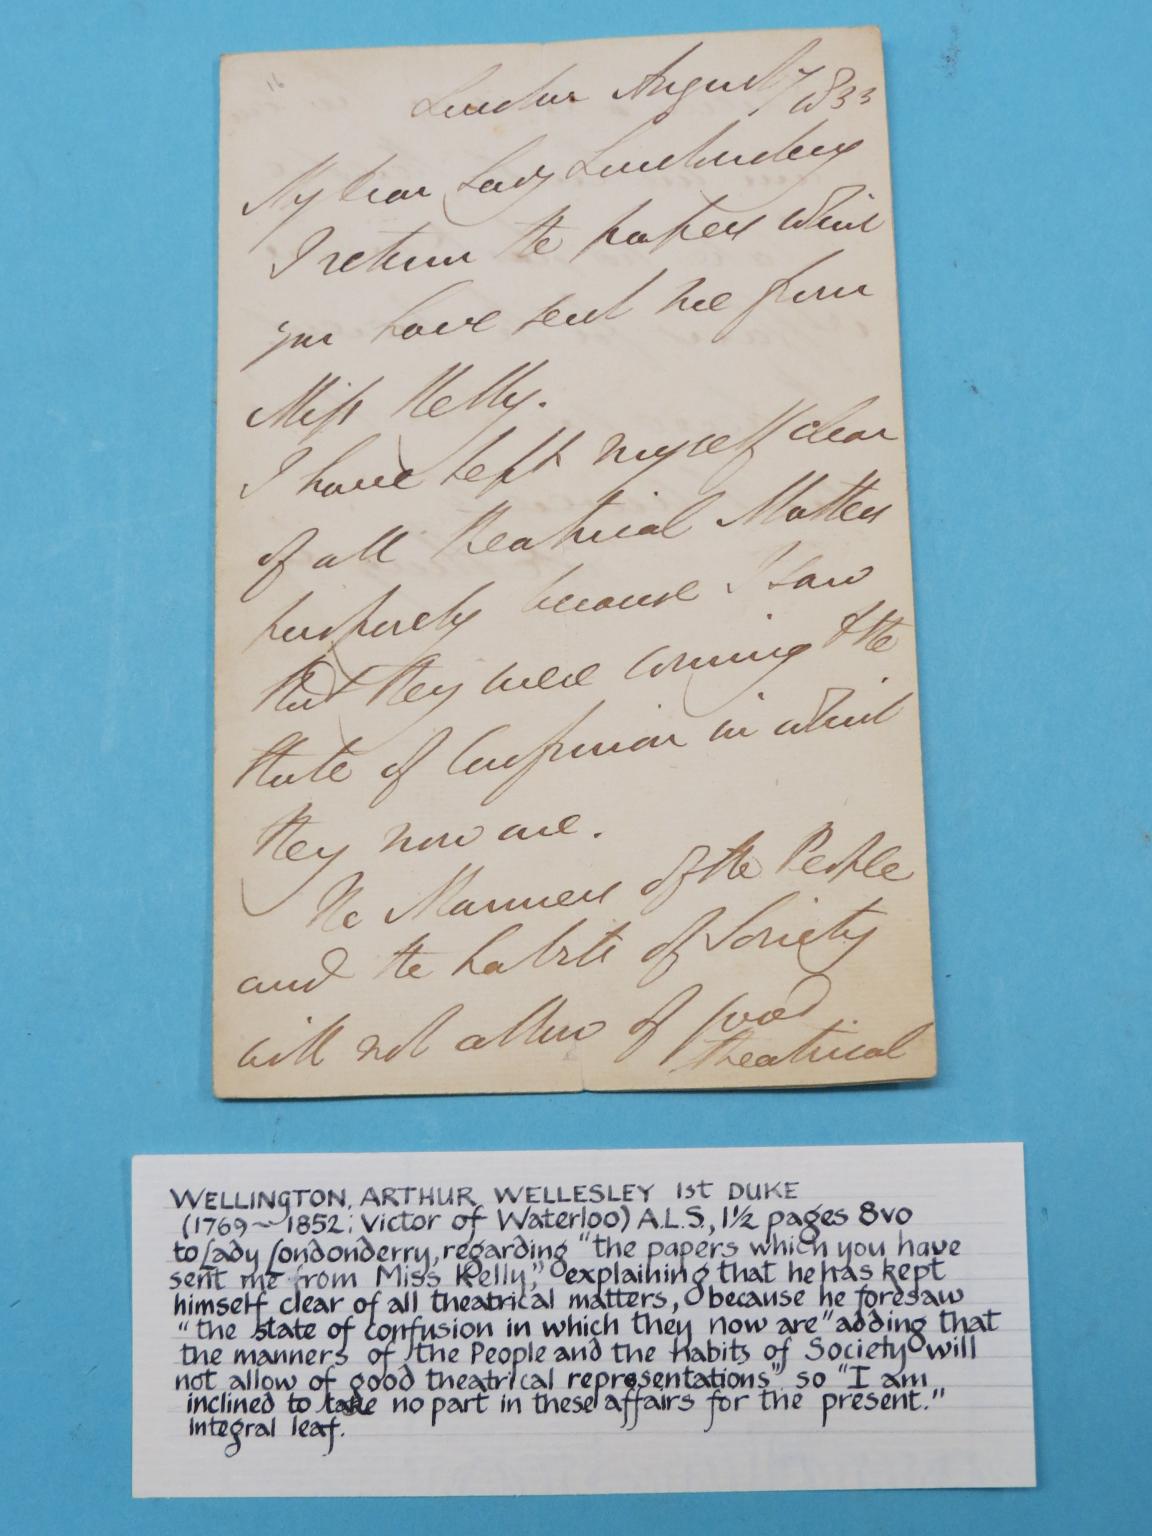 London August 7 1833
My dear Lady Londonderry
I return the papers which
you have sent me from
Miss Kelly.
I have kept myself clear
of all theatrical Matters
purposely because I saw
that they were coming to the
state of Confusion in which
they now are.
The Manners of the People
and the habits of Society
will not allow of good
theatrical
WELLINGTON, ARTHUR WELLESLEY 1st DUKE
(1769~1852; Victor of Waterloo) A.L.S., 1½ pages 8vo
to Lady Londonderry, regarding "the papers which you have
sent me from Miss Kelly," explaining that he has kept
himself clear of all theatrical matters, because he foresaw
"the state of confusion in which they now are" adding that
the manners of the People and the habits of Society will
not allow of good theatrical representations" so "I am
inclined to take no part in these affairs for the present."
Integral leaf.